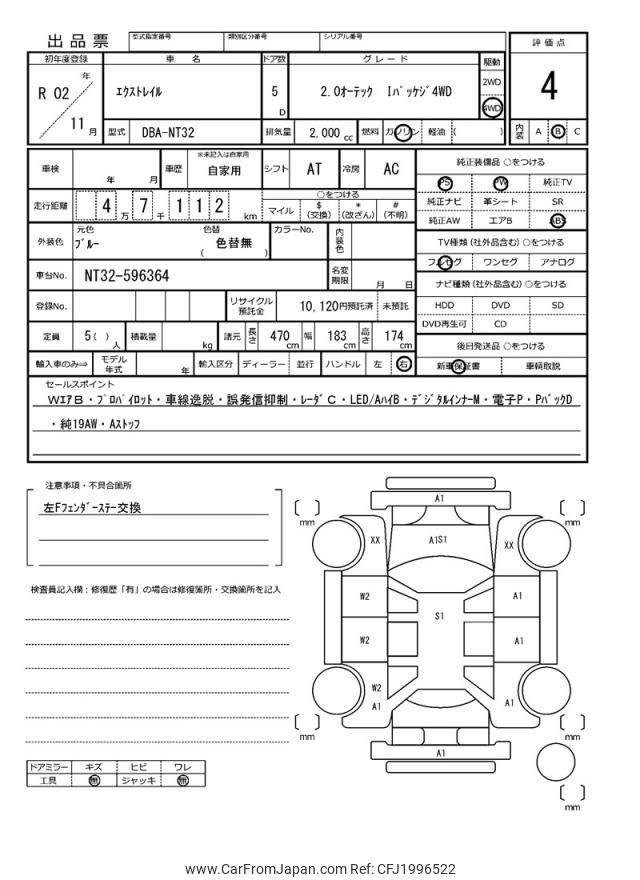 出品票 型式指定番号 類別区分番号 シリアル番号
初年度登録 車名 ドア数 グレード 駆動 評価点
R 02 年 11 月 エクストレイル 5 D 2.0オーテック Iパッケジ4WD 2WD 4WD 4
型式 DBA-NT32 排気量 2,000 cc 燃料 ガソリン 軽油 ( ) 内装 A B C
車検 年 月 車歴 ※未記入は自家用 自家用 シフト AT 冷房 AC 純正装備品 ○をつける
PS PW 純正TV
走行距離 4 万 7 千 1 1 2 km ○をつける マイル $ (交換) * (改ざん) # (不明) 純正ナビ 革シート SR
純正AW エアB ABS
外装色 元色 ブルー 色替 色替無 ( ) カラーNo. 内装色 TV種類 (社外品含む) ○をつける
フルセグ ワンセグ アナログ
車台No. NT32-596364 名変期限 月 日 ナビ種類 (社外品含む) ○をつける
登録No. リサイクル預託金 10,120円預託済 未預託 HDD DVD SD
DVD再生可 CD
定員 5( ) 人 積載量 kg 諸元 長さ 470 cm 幅 183 cm 高さ 174 cm 後日発送品 ○をつける
輸入車のみ⇒ モデル年式 年 輸入区分 ディーラー 並行 ハンドル 左 右 新車保証書 車輌取説
セールスポイント
WエアB・プロパイロット・車線逸脱・誤発信抑制・レーダC・LED/AハイB・デジタルインナーM・電子P・PバックD
・純19AW・Aストッフ
注意事項・不具合箇所
左Fフェンダーステー交換
検査員記入欄：修復歴「有」の場合は修復箇所・交換箇所を記入
mm A1 mm
XX A1S1 XX
W2 A1
S1
W2 A1
W2
A1 A1
mm A1 mm
mm
ドアミラー キズ ヒビ ワレ
工具 無 ジャッキ 無
www.CarFromJapan.com Ref: CFJ1996522